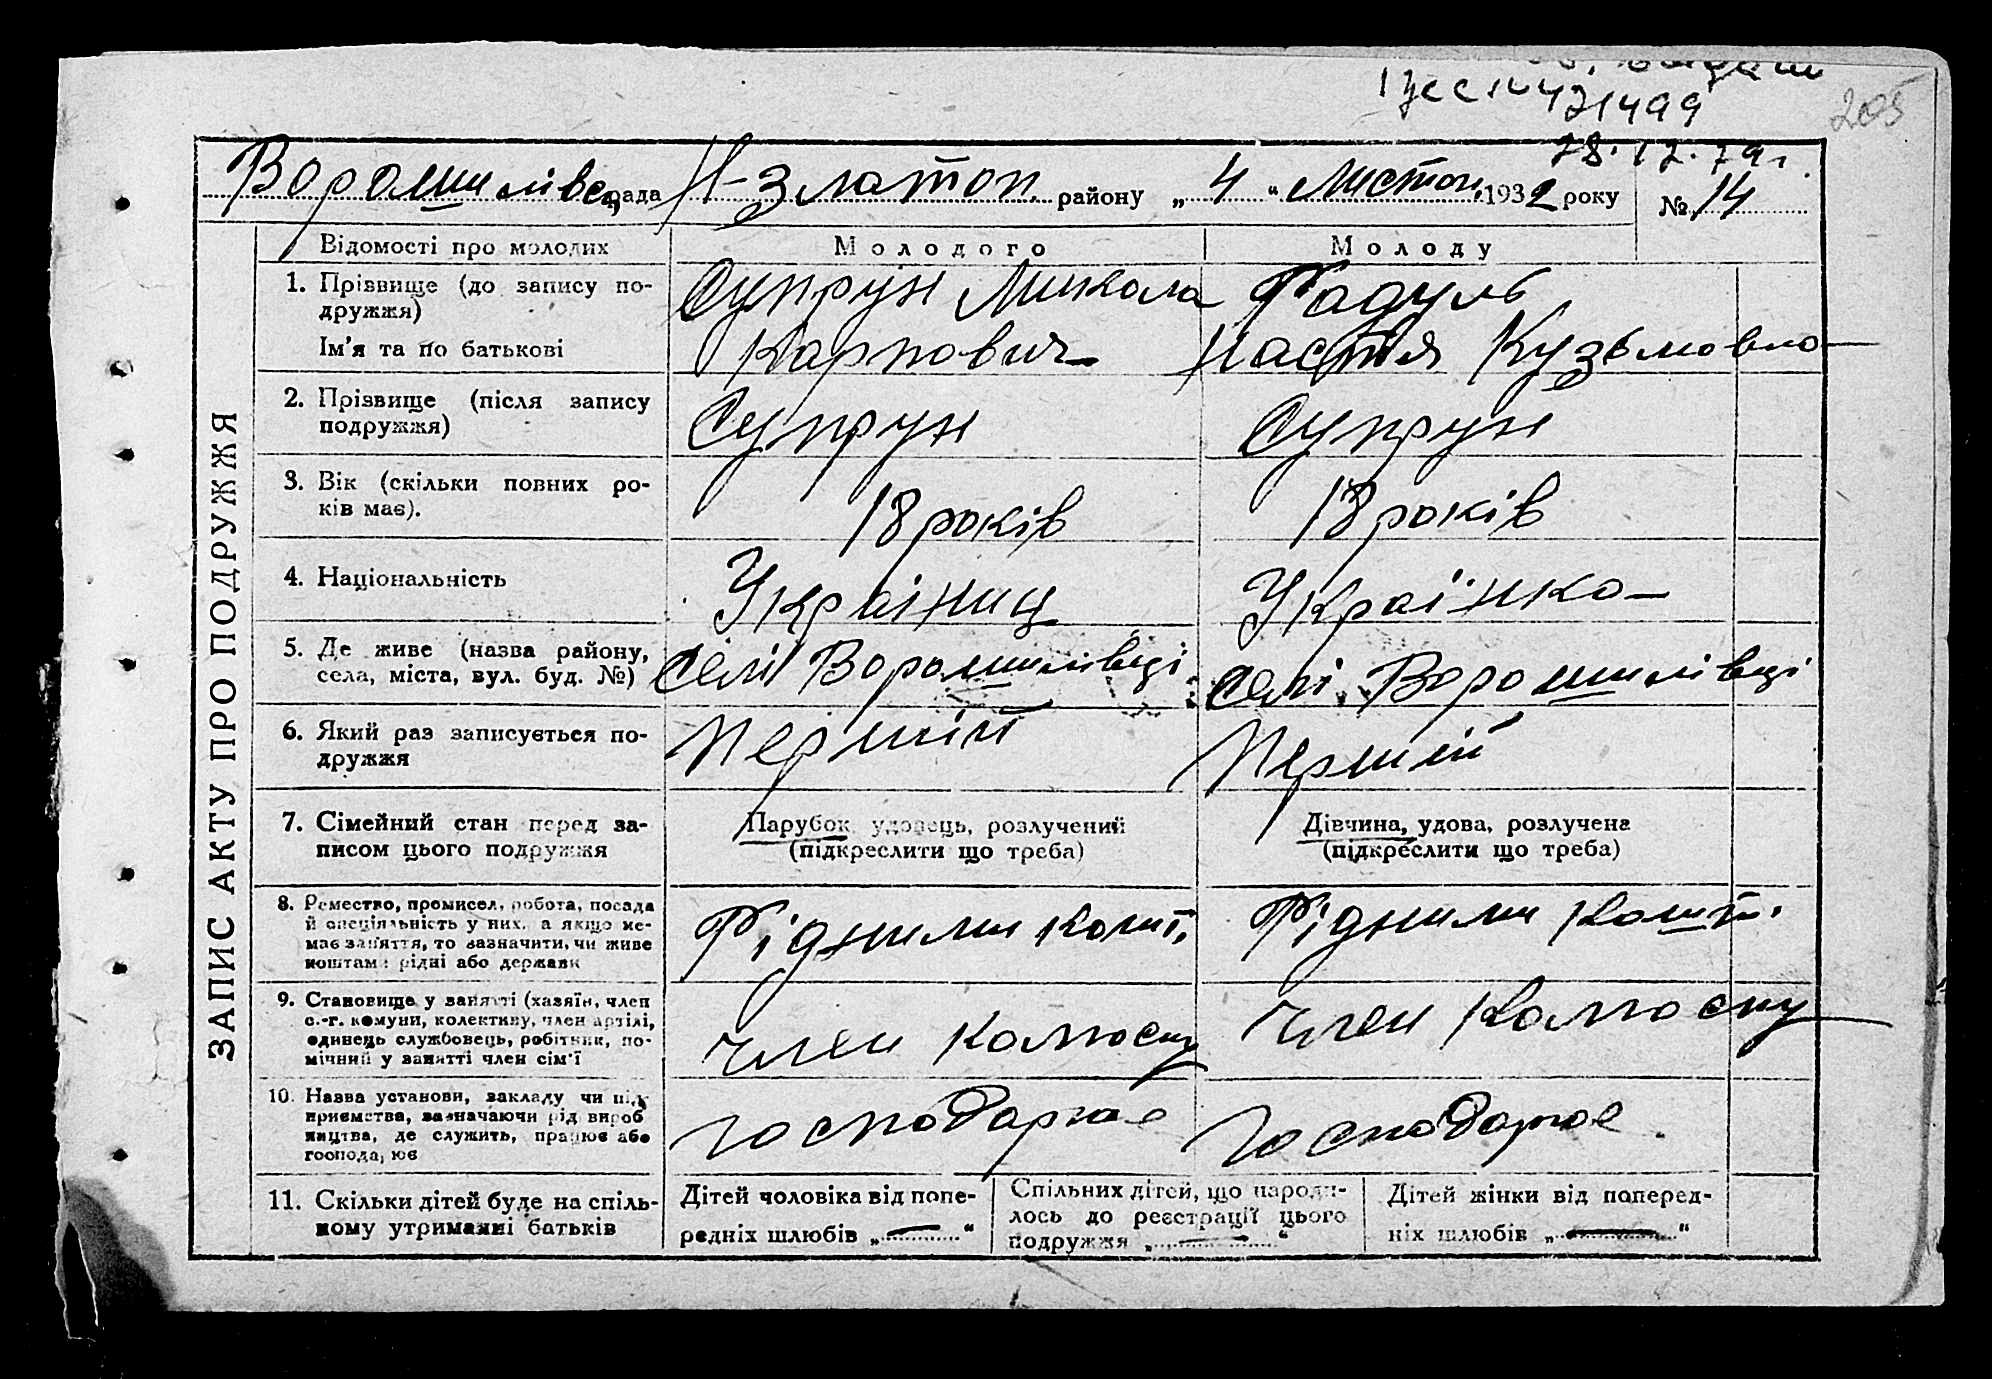 71499
205
28.12.79 г.
Ворошилівс рада Н-Златоп. району „ 4 “ листоп. 1932 року № 14
ЗАПИС АКТУ ПРО ПОДРУЖЖЯ
Відомості про молодих Молодого Молоду
1. Прізвище (до запису по-
дружжя)
Ім'я та по батькові
Супрун Микола
Карпович
Радуль
Настя Кузьмовна
2. Прізвище (після запису
подружжя)
Супрун
Супрун
3. Вік (скільки повних ро-
ків має).
18 років
18 років
4. Національність
Украінец
Украінка
5. Де живе (назва району,
села, міста, вул. буд. №)
Селі Ворошилівці
Селі Ворошилівці
6. Який раз записується по-
дружжя
Першій
Першій
7. Сімейний стан перед за-
писом цього подружжя
Парубок, удовець, розлучений
(підкреслити що треба)
Дівчина, удова, розлучена
(підкреслити що треба)
8. Ремество, промисел, робота, посада
й спеціяльність у них, а якщо не-
має заняття, то зазначити, чи живе
коштами рідні або держави
Рідними кошт.
Рідними кошт.
9. Становище у занятті (хазяїн, член
с.-г. комуни, колективу, член артілі,
одинець службовець, робітник, по-
мічний у занятті член сім'ї
член колгоспу
член колгоспу
10. Назва установи, закладу чи під-
приємства, зазначаючи рід вироб
ництва, де служить, працює або
господарює
господарює
господарює
11. Скільки дітей буде на спіль-
ному утриманні батьків
Дітей чоловіка від попе-
редніх шлюбів „ — “
Спільних дітей, що народи-
лось до реєстрації цього
подружжя „ — “
Дітей жінки від поперед-
ніх шлюбів „ — “